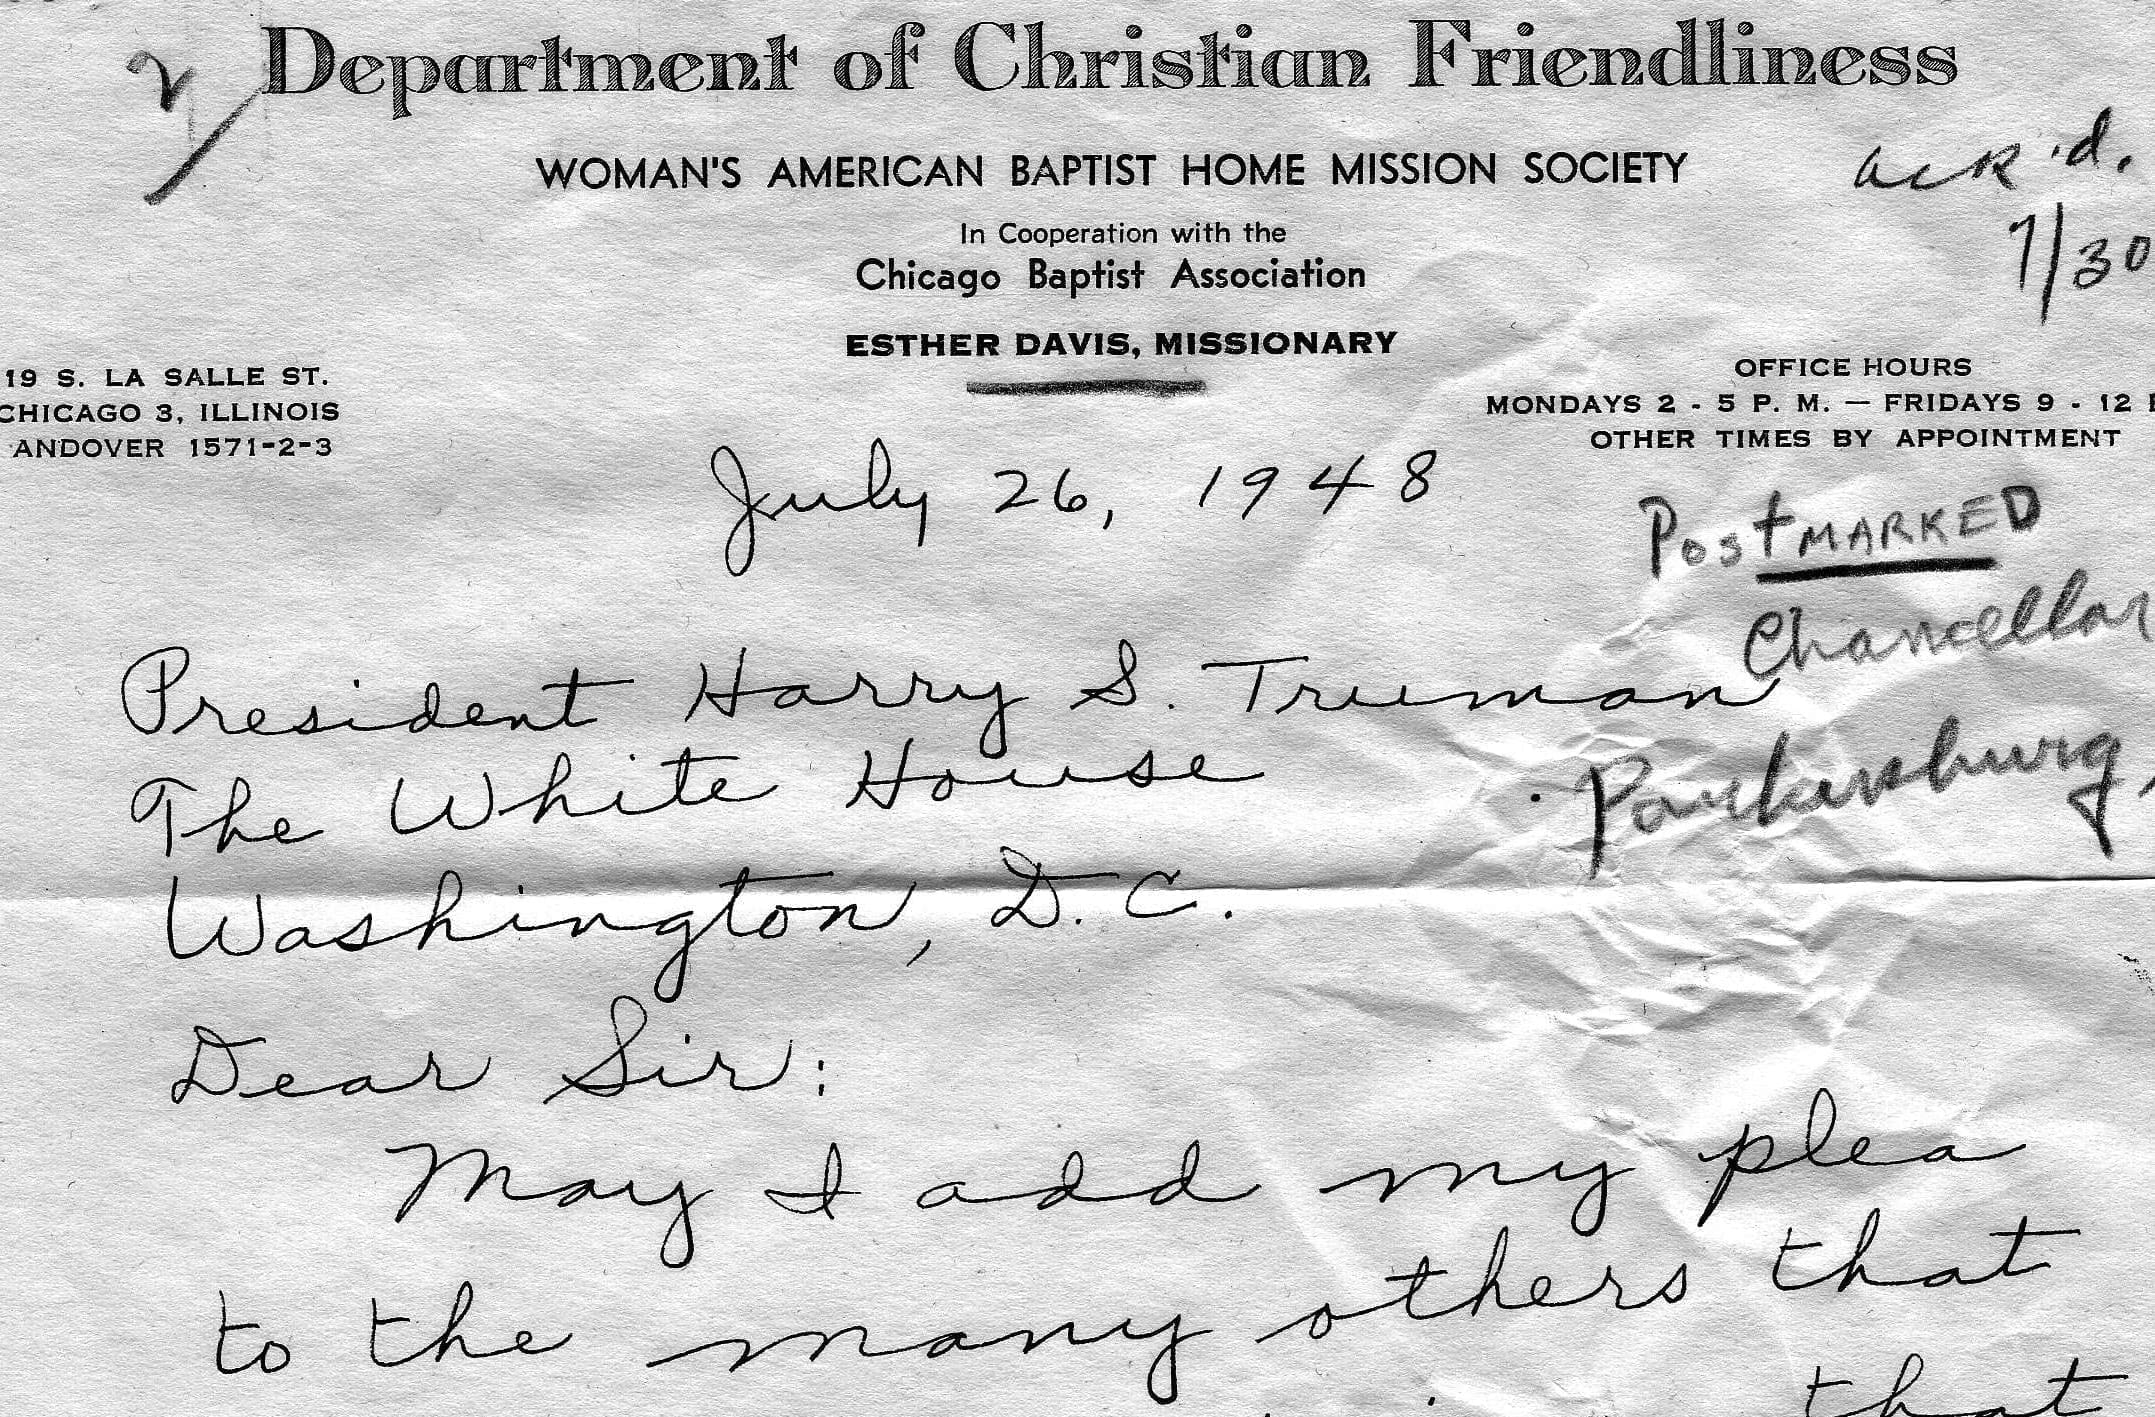 2/
Department of Christian Friendliness
WOMAN'S AMERICAN BAPTIST HOME MISSION SOCIETY
ack'd.
7/30
In Cooperation with the
Chicago Baptist Association
ESTHER DAVIS, MISSIONARY
19 S. LA SALLE ST.
CHICAGO 3, ILLINOIS
ANDOVER 1571-2-3
OFFICE HOURS
MONDAYS 2 - 5 P. M. — FRIDAYS 9 - 12
OTHER TIMES BY APPOINTMENT
July 26, 1948
Postmarked
Chancellor
Parkersburg,
President Harry S. Truman
The White House
Washington, D.C.
Dear Sir:
May I add my plea
to the many others that
that